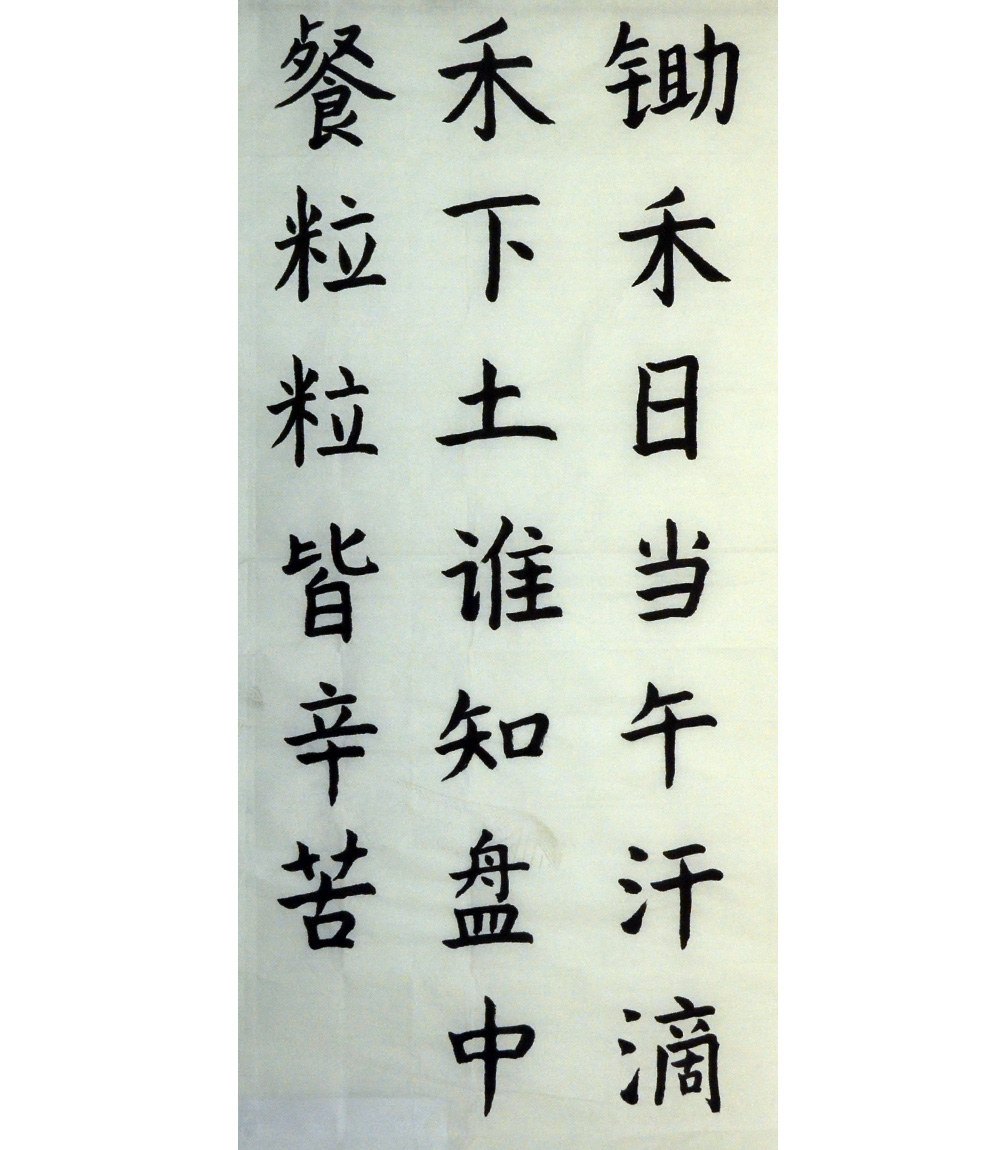 锄禾日当午汗滴
禾下土谁知盘中
餐粒粒皆辛苦